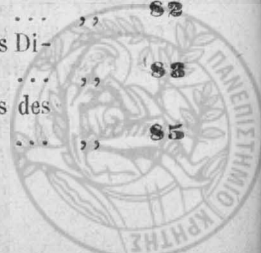 ... ,, 82
s Di-
... ,, 83
s des
... ,, 85
ΠΑΝΕΠΙΣΤΗΜΙΟ ΚΡΗΤΗΣ